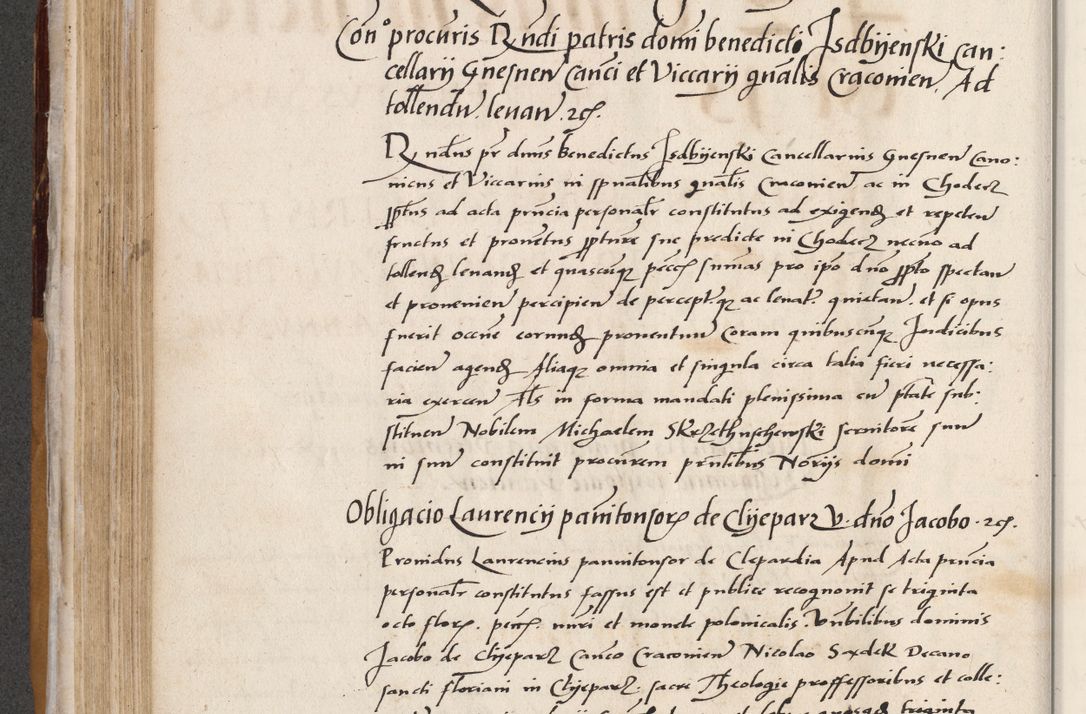 Con° procuris Rndi patris domi benedicto Isdbijenski can:
cellarij Gnesnen Canci et Viccarij gnalis Craconien. Ad
tollendu levan. 2c.
Rndus pr dnus benedictus Isdbijenski Cancellarius Gnesnen Cano:
nicus et Viccarius in spualibus gnalis Craconien ac in Chodecz
pptus ad acta pruncia personalr constitutus ad exigend et repeten
fructus et proventus ppture sue predicte in Chodecz necno ad
tollend levand et quascunq pecc summas pro ipo dno ppto spectan
et provenien percipien de perceptq ac levat quietan. et si opus
fuerit occne eorund proventuu Coram quibuscunq Iudicibus
facien agend Aliaq omnia et singula circa talia fieri necessa:
ria exercen Als in forma mandati plenissima cu ptate sub:
stituen Nobilem Michaelem Skrzethuschewski servitore suu
in suu constituit procurem prntibus Norijs domi
Obligacio Laurencij pannitonsor de Clijeparz V. dno Jacobo. 2c.
Providus Laurencius pannitonsor de Clepardia Apud Acta pruncia
personalr constitutus fassus est et publice recognovit se triginta
octo flor. pecc. nuri et monete polonicalis. Vnbilibus dominis
Jacobo de Clijeparz Canco Craconien Nicolao Sadek Decano
sancti floriani in Clijeparz. sacre Theologie proffessoribus et colle:
triginta